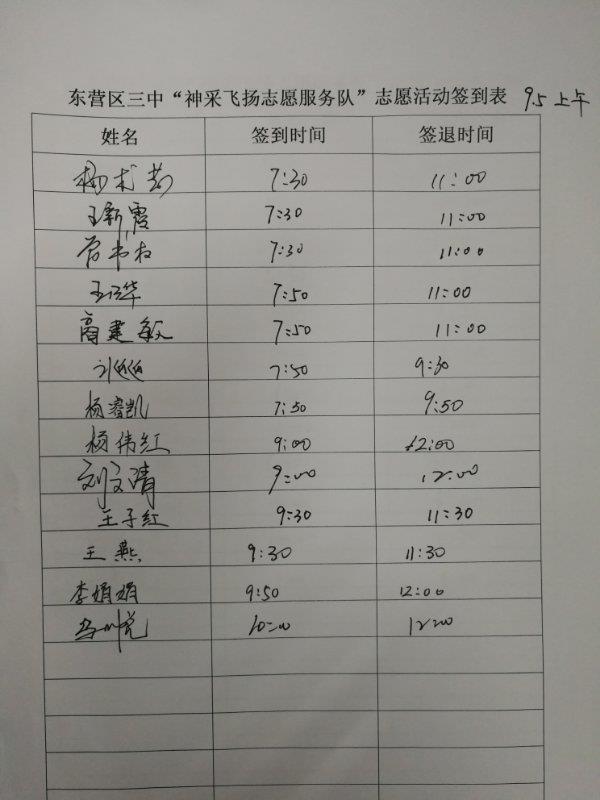 东营区三中“神采飞扬志愿服务队”志愿活动签到表 9.5上午
姓名 签到时间 签退时间
7:30 11:00
王新霞 7:30 11:00
7:30 11:00
7:50 11:00
高建敏 7:50 11:00
7:50 9:30
杨睿凯 7:50 9:50
杨伟红 9:00 12:00
刘文清 9:00 12:00
王子红 9:30 11:30
王燕 9:30 11:30
李娟娟 9:50 12:00
10:00 12:00